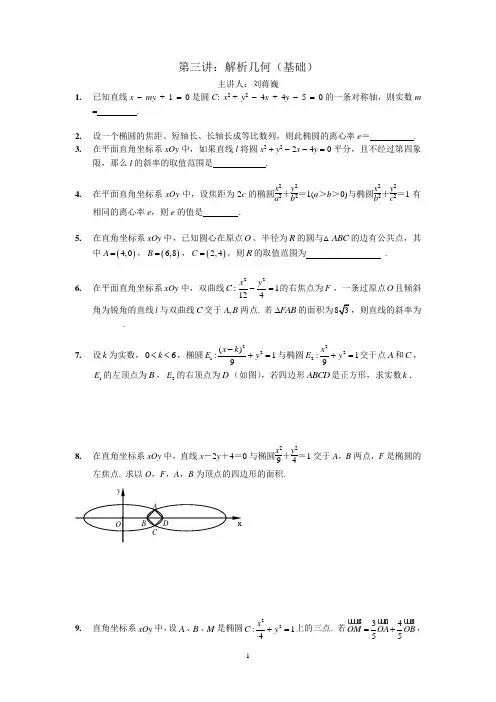 第三讲：解析几何（基础）
主讲人：刘蒋巍
1. 已知直线 x − my + 1 = 0 是圆 C: x² + y² − 4x + 4y − 5 = 0 的一条对称轴，则实数 m
= ________ .
2. 设一个椭圆的焦距、短轴长、长轴长成等比数列，则此椭圆的离心率 e＝ ________ .
3. 在平面直角坐标系 xOy 中，如果直线 l 将圆 x² + y² − 2x − 4y = 0 平分，且不经过第四象
限，那么 l 的斜率的取值范围是 ________ .
4. 在平面直角坐标系 xOy 中，设焦距为 2c 的椭圆 x²/a²＋y²/b²＝1(a＞b＞0)与椭圆 x²/b²＋y²/c²＝1 有
相同的离心率 e，则 e 的值是 ________ .
5. 在直角坐标系 xOy 中，已知圆心在原点 O 、半径为 R 的圆与△ ABC 的边有公共点，其
中 A = (4,0)，B = (6,8)，C = (2,4)，则 R 的取值范围为 ________ .
6. 在平面直角坐标系 xOy 中，双曲线 C : x²/12 − y²/4 = 1 的右焦点为 F ，一条过原点 O 且倾斜
角为锐角的直线 l 与双曲线 C 交于 A,B 两点. 若 ΔFAB 的面积为 8√3，则直线的斜率为
________ .
7. 设 k 为实数，0 < k < 6，椭圆 E₁ : (x − k)²/9 + y² = 1 与椭圆 E₂ : x²/9 + y² = 1 交于点 A 和 C，
E₁ 的左顶点为 B，E₂ 的右顶点为 D（如图），若四边形 ABCD 是正方形，求实数 k .
8. 在直角坐标系 xOy 中，直线 x－2y＋4＝0 与椭圆 x²/9＋y²/4＝1 交于 A，B 两点，F 是椭圆的
左焦点. 求以 O，F，A，B 为顶点的四边形的面积.
y
A
O B D x
C
9. 直角坐标系 xOy 中，设 A 、B 、M 是椭圆 C : x²/4 + y² = 1 上的三点. 若 OM = 3/5 OA + 4/5 OB ，
1